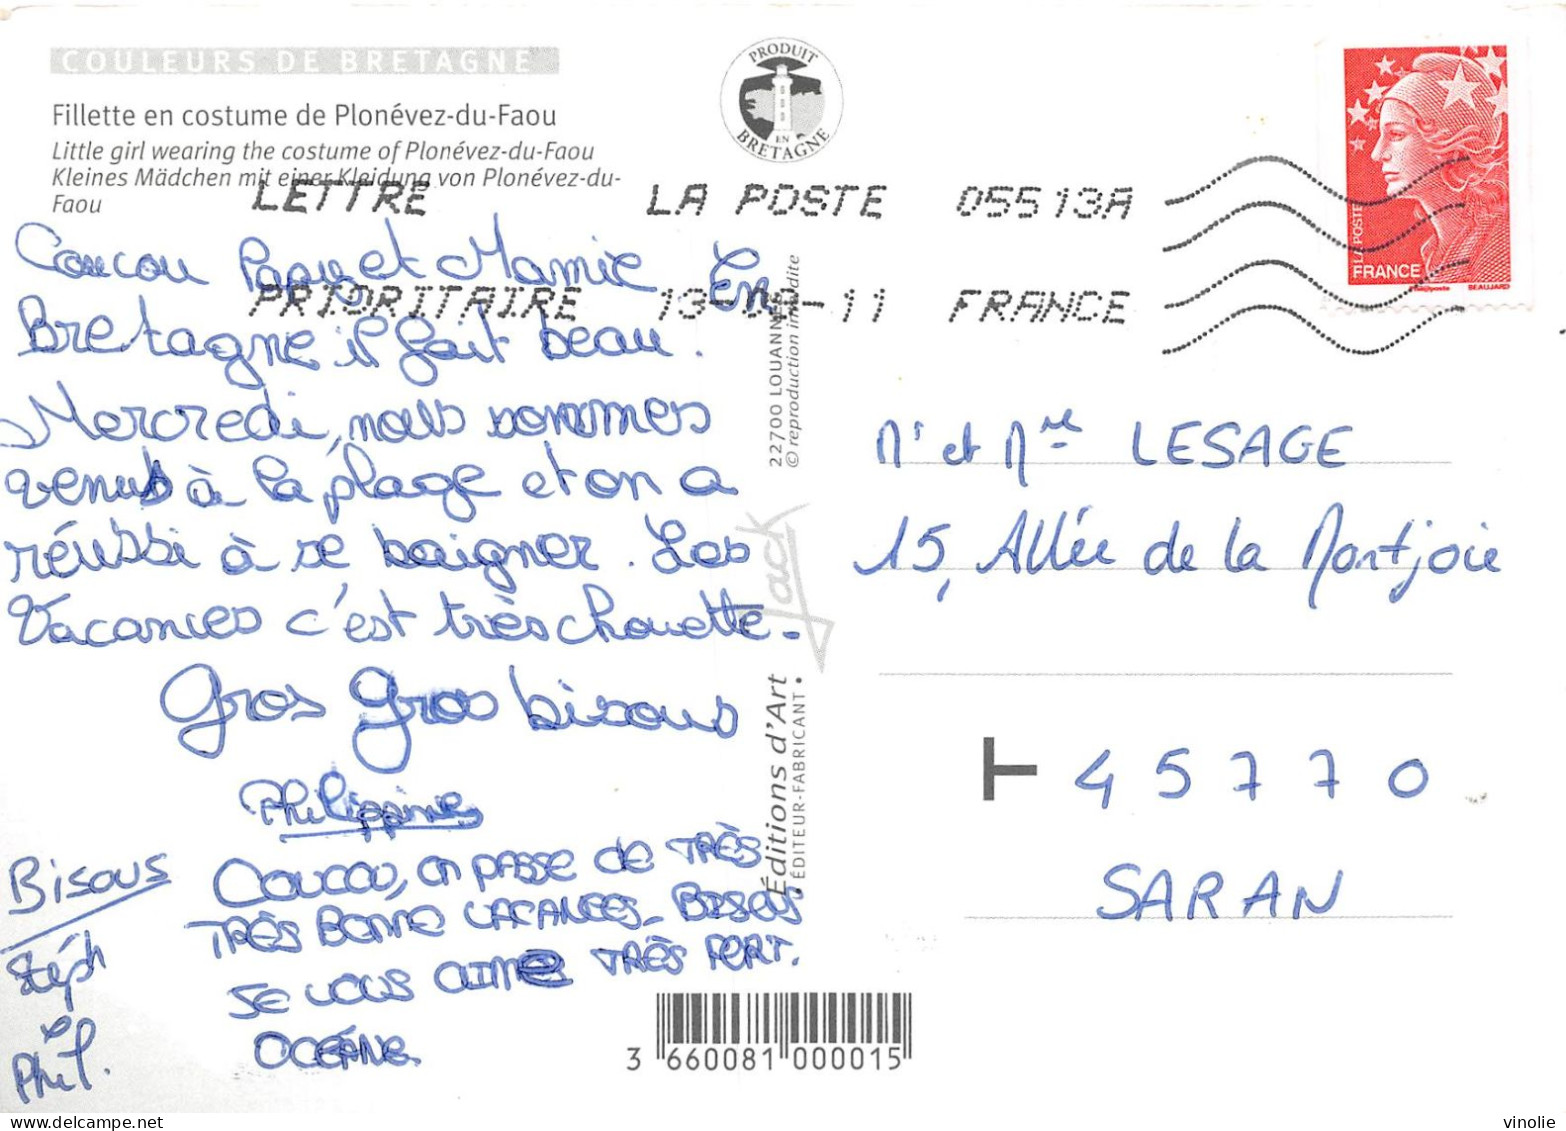 COULEURS DE BRETAGNE
Fillette en costume de Plonévez-du-Faou
Little girl wearing the costume of Plonévez-du-Faou
Kleines Mädchen mit einer Kleidung von Plonévez-du-
Faou
PRODUIT
EN
BRETAGNE
LETTRE LA POSTE 05513A
PRIORITAIRE 13- -11 FRANCE
LA POSTE
FRANCE
BEAUJARD
Coucou Papy et Mamie En
Bretagne il fait beau.
Mercredi, nous sommes
venus à la plage et on a
réussi à se baigner. Les
Vacances c'est très chouette.
Gros Gros bisous
Philippine
Coucou, on passe de TRÈS
TRÈS BONNE VACANCES. BISOUS
JE VOUS AIME TRÈS FORT.
OCÉANE.
Bisous
Stéph
et
Phil.
22700 LOUANNEC
© reproduction interdite
Jack
Éditions d'Art
ÉDITEUR-FABRICANT
Mr et Mme LESAGE
15, Allée de la Montjoie
T 45770
SARAN
3 660081 000015
vinolie